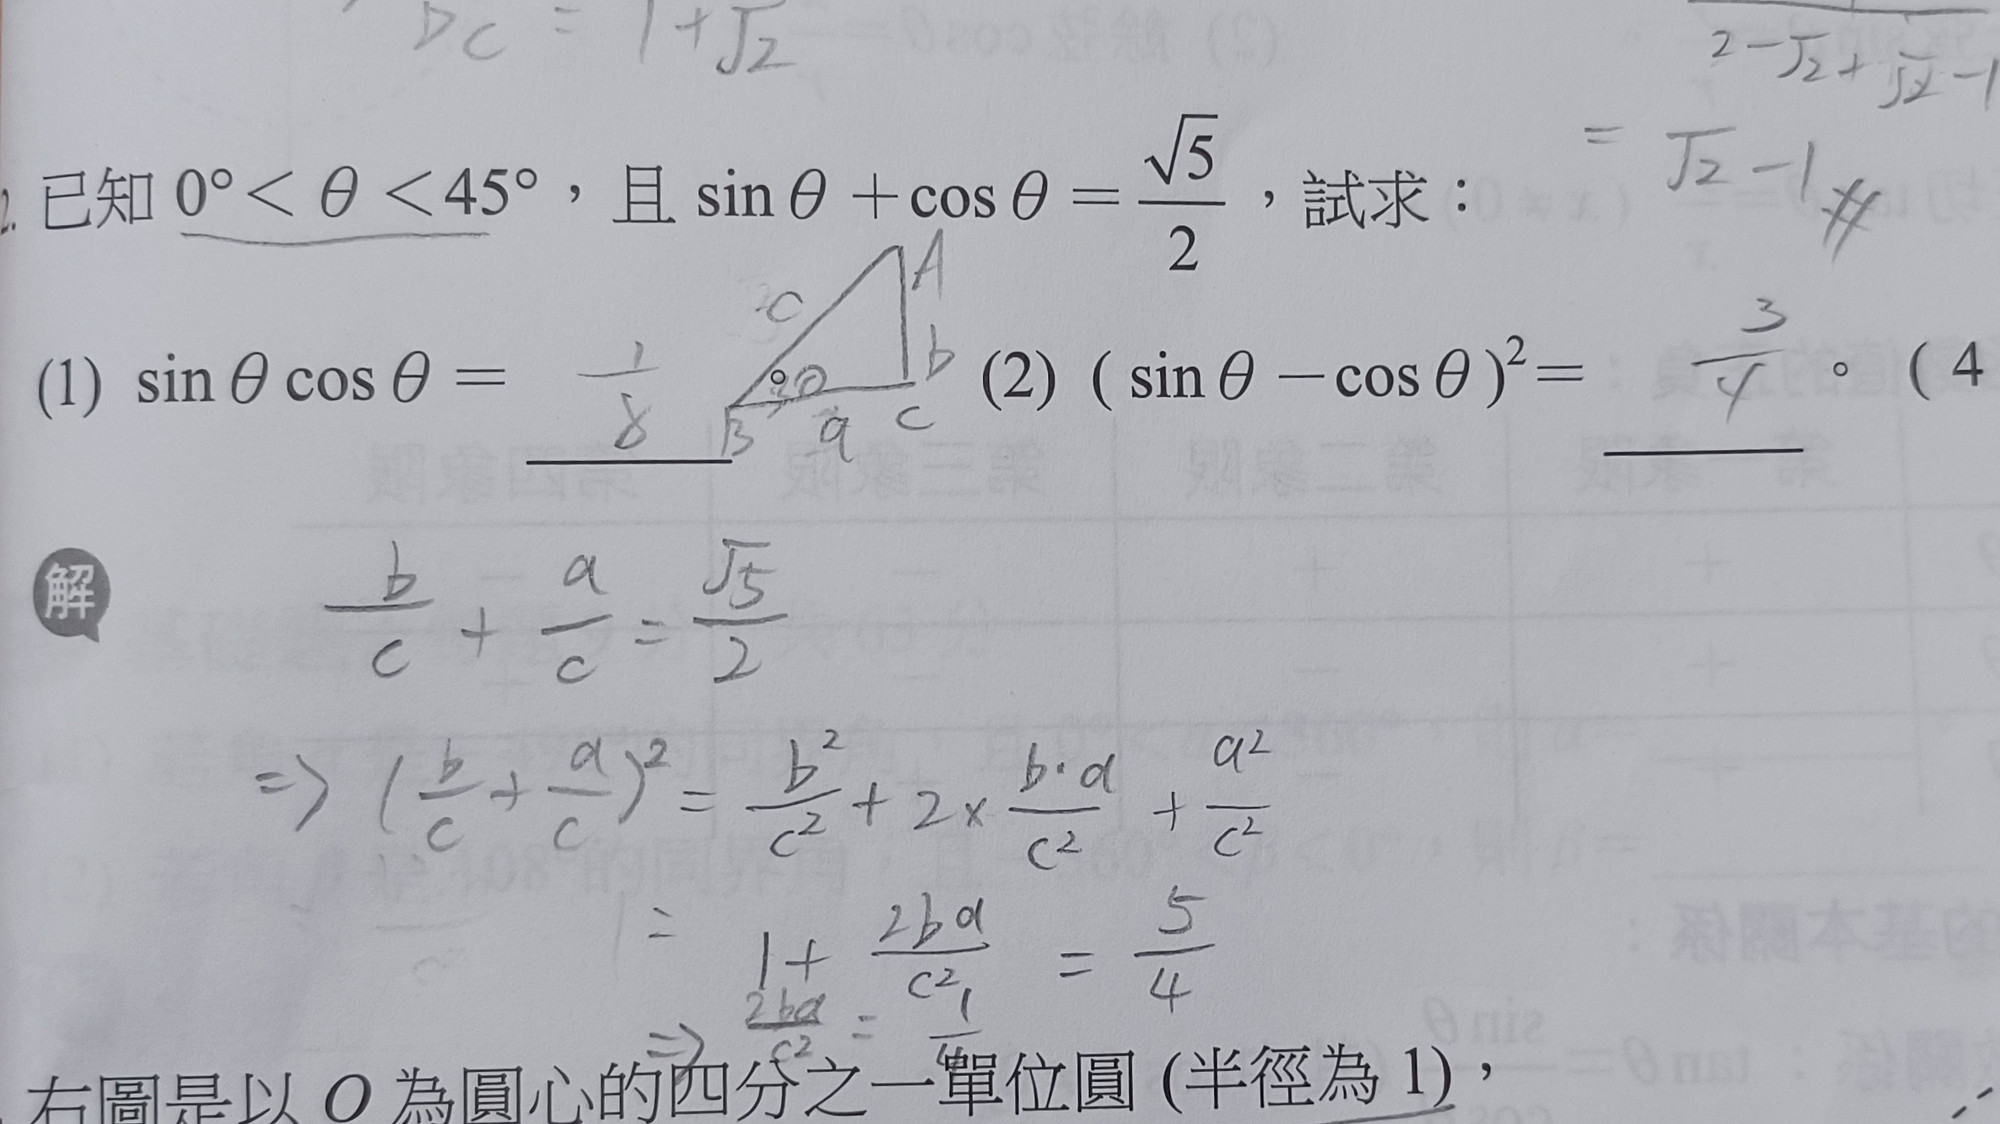 DC = 1+√2
2-√2+√2-1
= √2-1 #
2. 已知 0°< θ <45°，且 sin θ +cos θ = √5/2 ，試求：
(1) sin θ cos θ = 1/8 (2) ( sin θ -cos θ )²= 3/4 。( 4
A
c b
B a C
解
b/c + a/c = √5/2
=> (b/c + a/c)² = b²/c² + 2× b·a/c² + a²/c²
= 1+ 2ba/c² = 5/4
=> 2ba/c² = 1/4
右圖是以 O 為圓心的四分之一單位圓 (半徑為 1)，